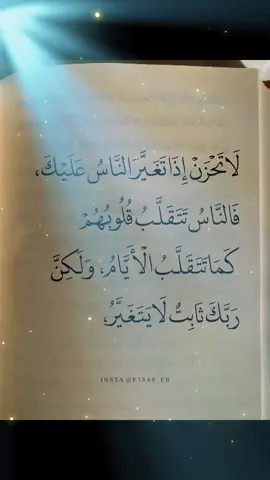 لَا تَحْزَنْ إِذَا تَغَيَّرَ النَّاسُ عَلَيْكَ،
فَالنَّاسُ تَتَقَلَّبُ قُلُوبُهُمْ
كَمَا تَتَقَلَّبُ الْأَيَّامُ، وَلَكِنَّ
رَبَّكَ ثَابِتٌ لَا يَتَغَيَّرُ،
INSTA @E7SAS_FB